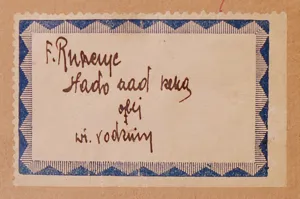 F. Ruszczyc
Stado nad rzeką
olej
wł. rodziny